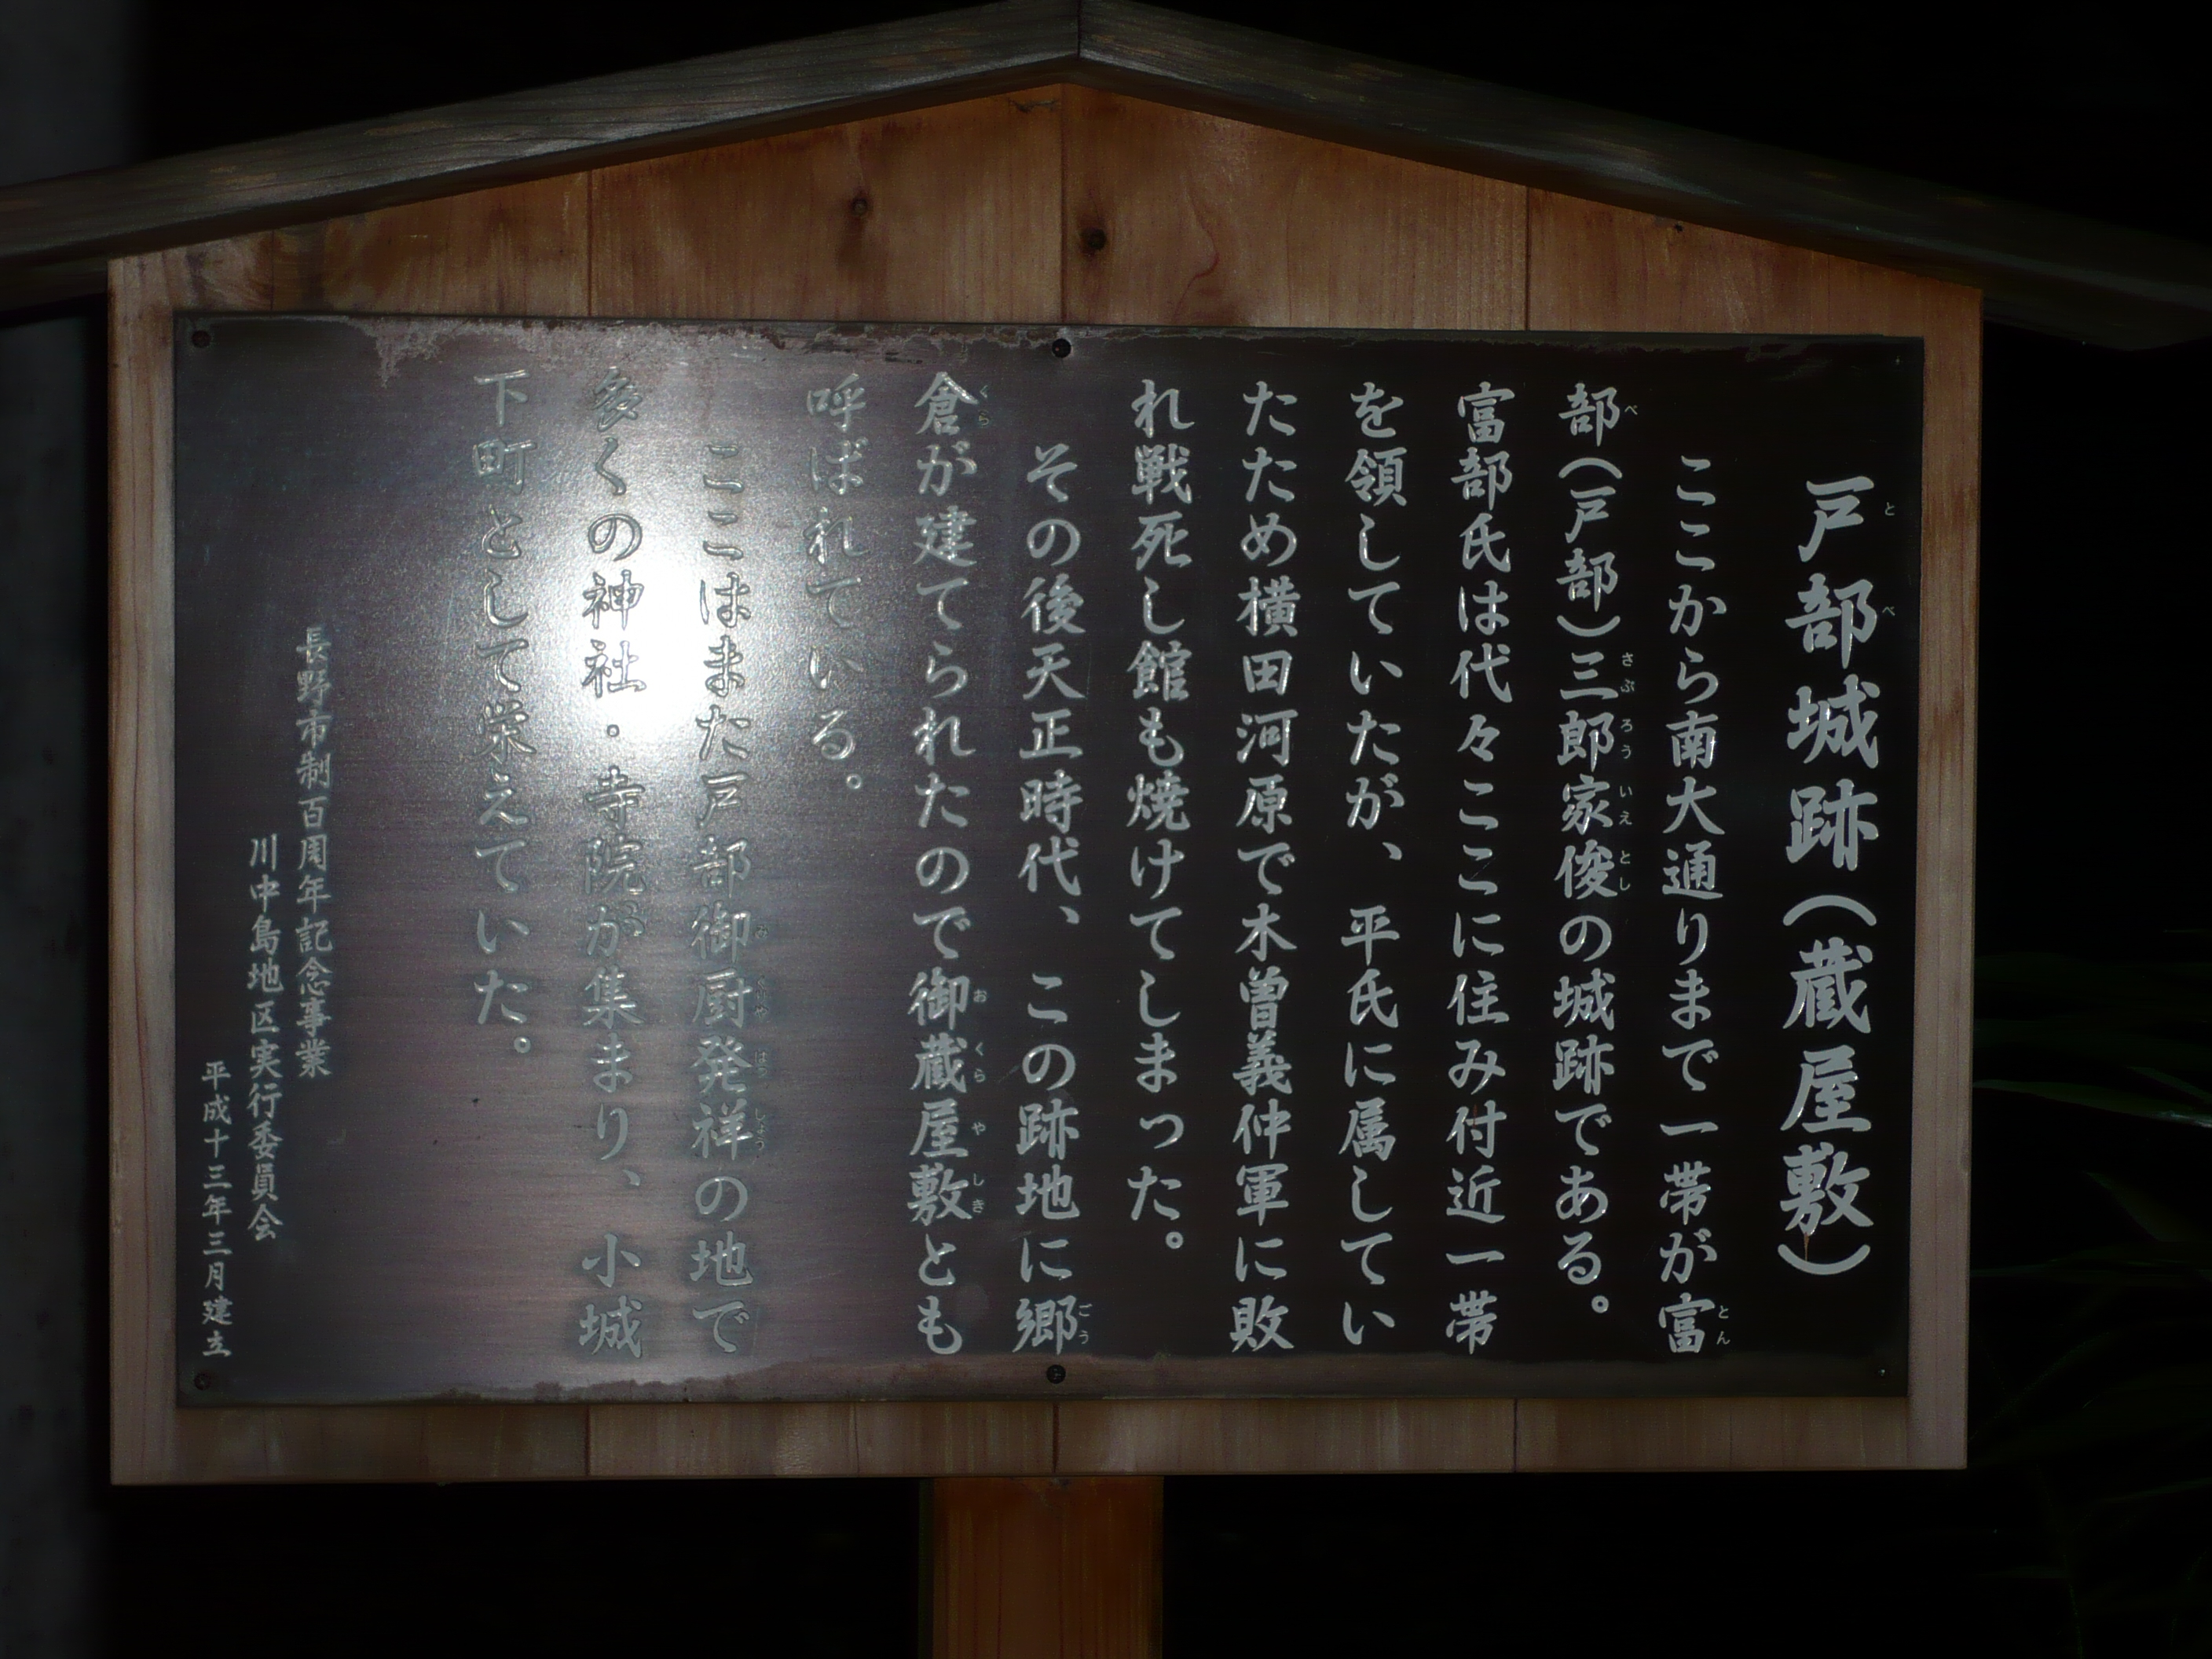 戸部城跡（蔵屋敷）
ここから南大通りまで一帯が富
部（戸部）三郎家俊の城跡である。
富部氏は代々ここに住み付近一帯
を領していたが、平氏に属してい
たため横田河原で木曽義仲軍に敗
れ戦死し館も焼けてしまった。
その後天正時代、この跡地に郷
倉が建てられたので御蔵屋敷とも
呼ばれている。
ここはまた戸部御厨発祥の地で
多くの神社・寺院が集まり、小城
下町として栄えていた。
長野市制百周年記念事業
川中島地区実行委員会
平成十三年三月建立